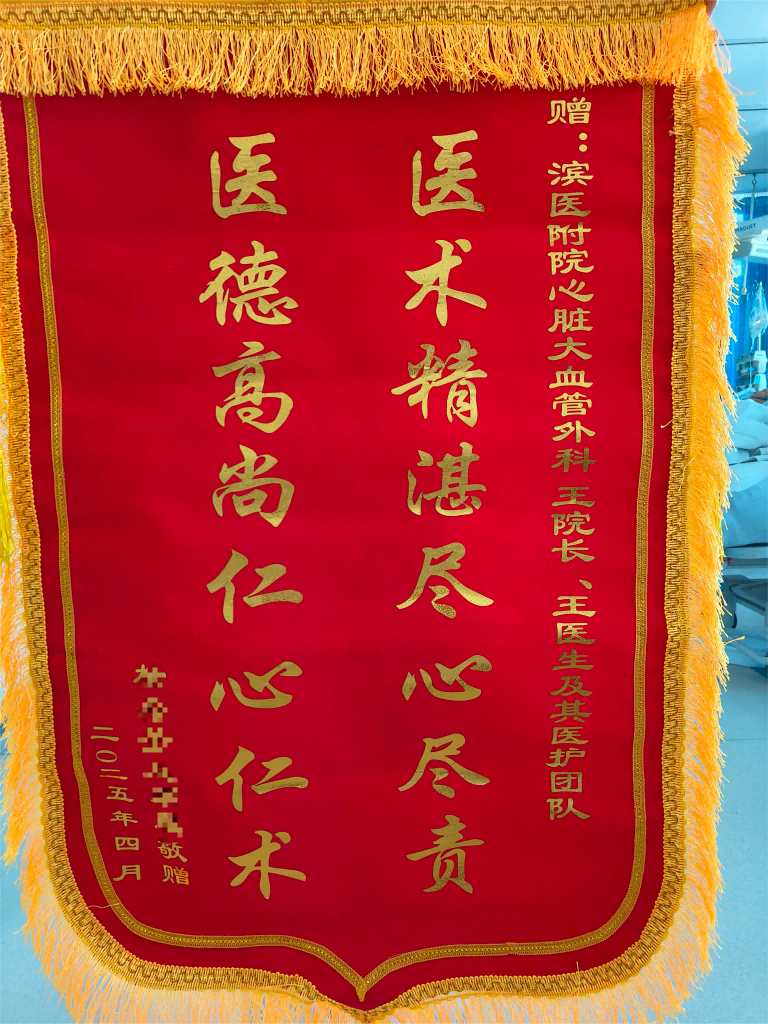 赠：滨医附院心脏大血管外科 王院长、王医生及其医护团队
医术精湛尽心尽责
医德高尚仁心仁术
敬赠
二〇二五年四月